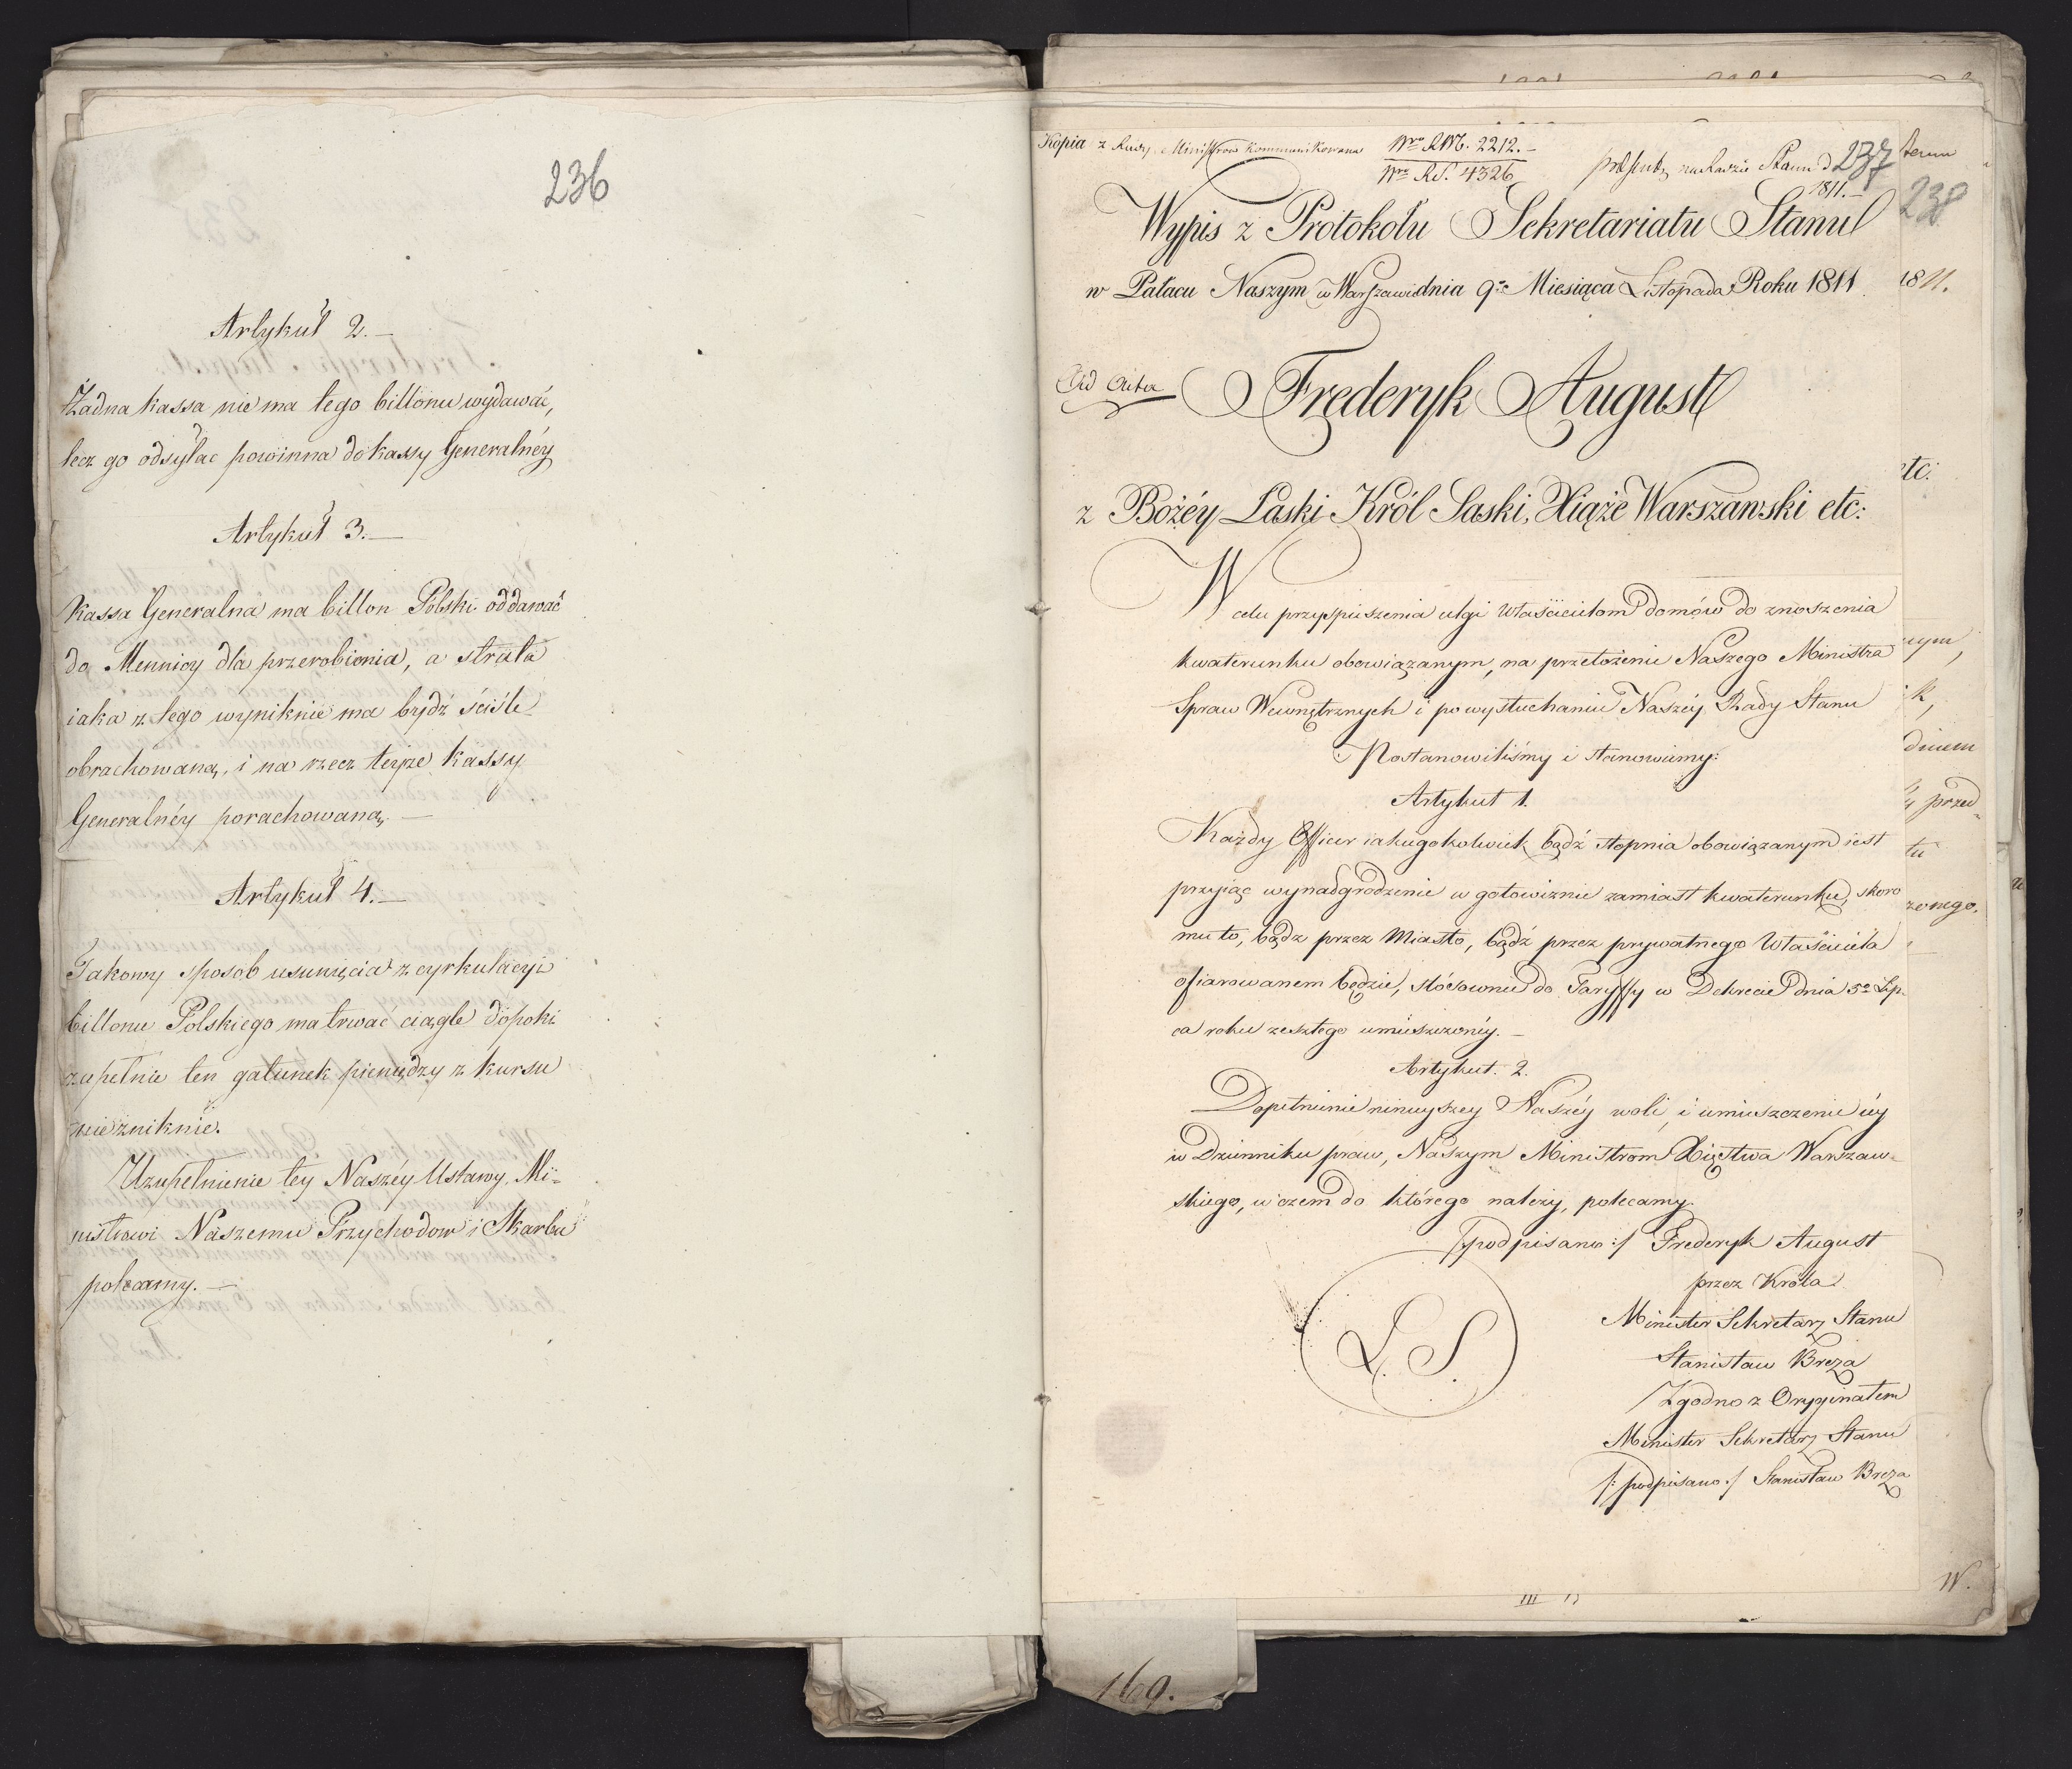 236
Artykuł 2.—
Żadna kassa nie ma tego billonu wydawać,
lecz go odsyłac powinna do kassy Generalnéy
Artykuł 3.—
Kassa Generalna ma billon Polski oddawać
do Mennicy dla przerobienia, a strata
iaka z tego wyniknie ma bydź ściśle
obrachowaną, i na rzecz teyże kassy
Generalnéy porachowaną.—
Artykuł 4.—
Takowy sposob usunięcia z cyrkulacyi
billonu Polskiego ma trwać ciągle dopoki
zupełnie ten gatunek pieniędzy z kursu
nie zniknie.
Uzupełnienie tey Naszéy Ustawy, Mi=
nistrowi Naszemu Przychodow i Skarbu
polecamy.—
Kopia z Rady Ministrow kommunikowana
Nro RM. 2212.—
Nro RS. 4326
Stanu d
237
1811.—
238
Wypis z Protokołu Sekretariatu Stanu
w Pałacu Naszym w Warszawie dnia 9go Miesiąca Listopada Roku 1811
1811.
Ad Acta
Frederyk August
etc:
z Bożéy Łaski Król Saski, Xiąże Warszawski etc:
W celu przyspieszenia ulgi Właścicielom domów do znoszenia
kwaterunku obowiązanym, na przełożenie Naszego Ministra
Spraw Wewnętrznych i po wysłuchaniu Naszéy Rady Stanu
Postanowiliśmy i stanowiemy:
Artykuł 1.
Każdy Officer iakiegokolwiek bądź stopnia obowiązanym iest
przyiąć wynadgrodzenie w gotowiznie zamiast kwaterunku, skoro
mu to, bądz przez Miasto, bądź przez prywatnego Właściciela
ofiarowanem będzie, stósownie do Taryffy w Dekrecie dnia 5o Lip-
ca roku zeszłego umieszczonéy.—
Artykuł. 2.
Dopełnienie ninieyszey Naszéy woli, i umieszczenie iéy
w Dzienniku praw, Naszym Ministrom Xięstwa Warszaw-
skiego, w czem do którego należy, polecamy.
/:podpisano:/ Frederyk August
przez Króla
Minister Sekretarz Stanu
Stanisław Breza
Zgodno z Oryginałem
Minister Sekretarz Stanu
/:podpisano:/ Stanisław Breza
L. S.
W.
169.